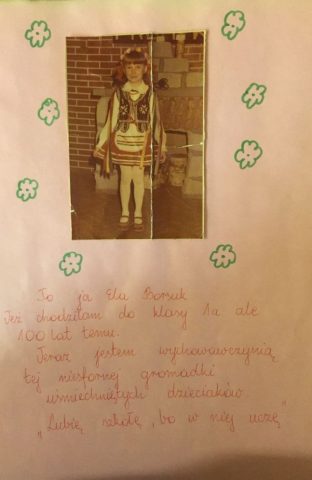 To ja Ela Borsuk
Też chodziłam do klasy 1a ale
100 lat temu.
Teraz jestem wychowawczynią
tej niesfornej gromadki
uśmiechniętych dzieciaków.
"Lubię szkołę, bo w niej uczę"